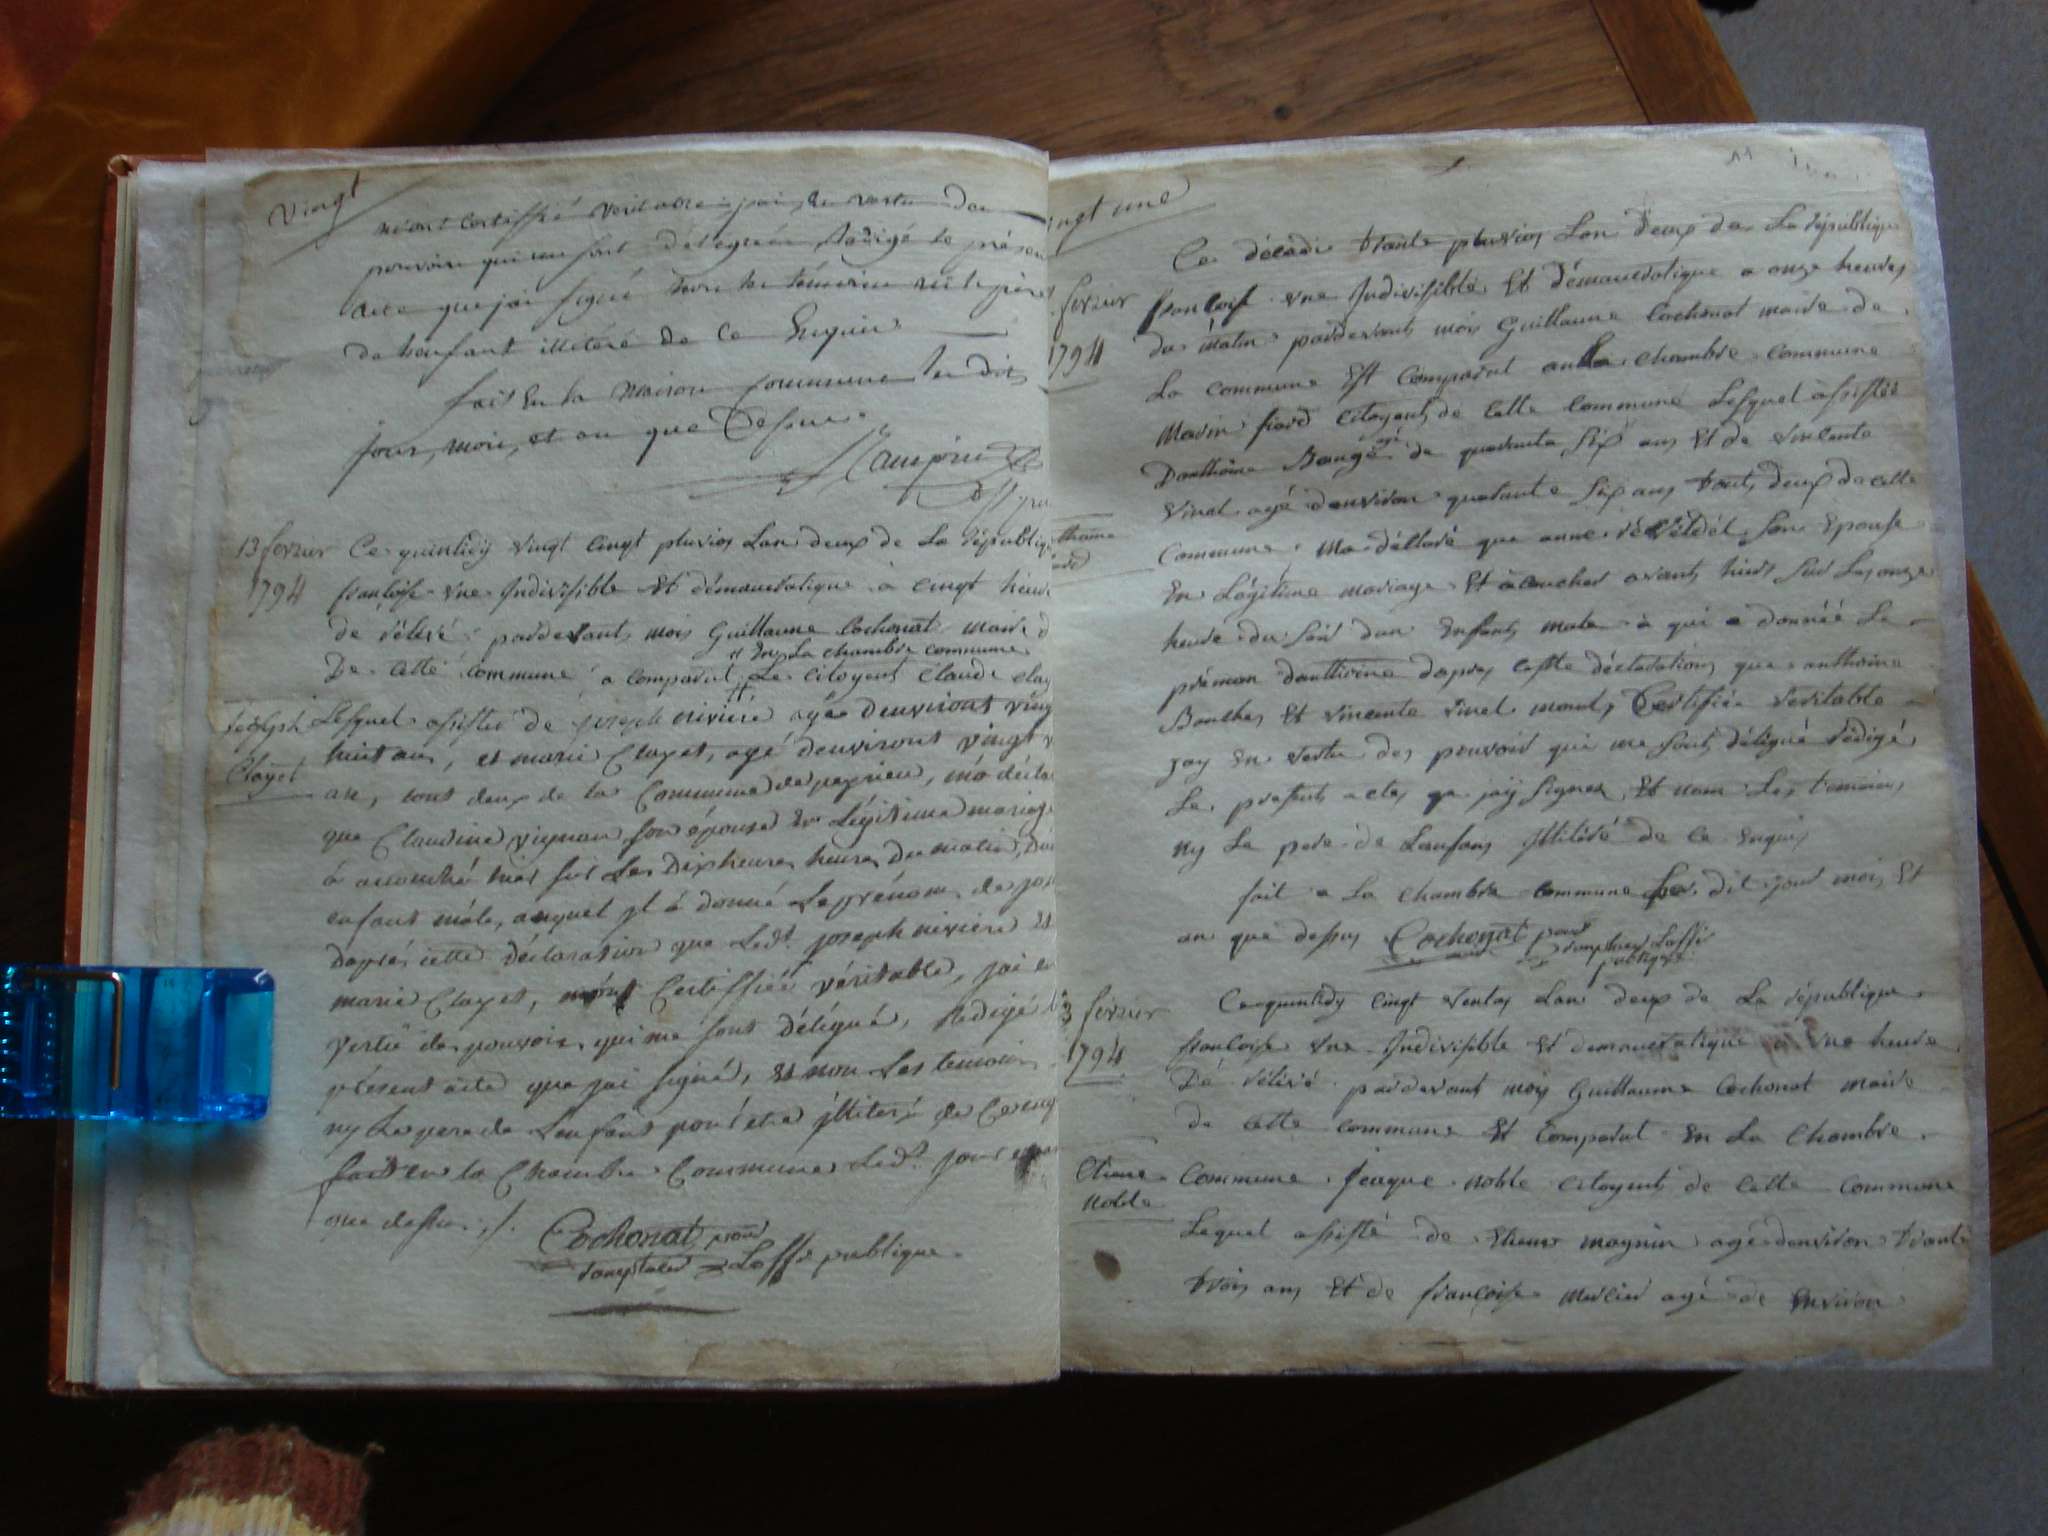 vingt
m'ont certiffié véritable j'ai en vertu des
pouvoirs qui me sont délégués Rédigé le présen
acte que j'ai signé
de l'enfant illitéré de ce Enquis
fait En la Maison commune les dits
jour, mois, et an que Dessus
13 fevrier
1794
Ce quintidy vingt cingt pluvios Lan deux de La républiq
françoise vne Indivisible Et démaucratique à cingt heure
de rélevé pardevant mois Guillaume Cochonat maire d
En La chambre commune
De cette commune a comparut Le citoyent Claude clay
Joseph
Clayet
Lesquel assisté de joseph riviere agé d'environt ving
huit ans, et marie Clayet, agé d'environt vingt
an, tous deux de la Commune de , m'a décla
que Claudine vignon son épouse En Légitime mariage
à accouché hier sur Les Dix heures heures Du matin, Du
enfant mâle, auquel yl à donné Le prénom de jos
Daprès cette Déclaration que Ledt. joseph riviere Et
marie Clayet, m'ont Certiffiée véritable, j'ai en
vertu des pouvoirs qui me sont Délégués, Redigé l
présent acte que j'ai signé, Et non Les temoins
ny Le pere de L'enfant pour être illiteré de Ce enq
fait en la Chambre Commune Ledt. jour
que dessus ./.
Cochonat pour
remplacer Loffi publique
ngt une
fevrier
1794
Ce décadi trante pluvios Lan Deux de La république
françoise vne Indivisible Et démaucratique a onze heures
du matin pardevant mois Guillaume Cochonat maire de
La commune Est Comparut en La chambre commune
Marin fiard citoyent de Cette Commune Lesquel assistée
Danthoine agé de quarante six ans Et de vincente
vinet agé denviron quarante six ans tout deux de cette
thoine
Commune ma déllaré que anne son Epouse
En Légitime mariage Et acouchée avant hiers sur Les onze
heure du soir dun Enfant male à qui a donnée Le
prénom danthoine dapres cette déclarations que anthoine
Et vincente vinet mont Certifiée veritable
jay en vertu des pouvoir qui me sont déligué rédigé
Le present acte que jay signer Et nom Les temoins
ny Le pere de Lanfant Illiteré de ce Enquis
fait a La chambre commune Les dit jour mois Et
an que dessus Cochonat pour
remplacer Loffi
publique
3 fevrier
1794
Ce quintidy cingt ventos Lan deux de La république
françoise vne Indivisible Et demaucratique a vne heure
De rélévé pardevant mois Guillaume Cochonat maire
de cette commune Et Comparut En La Chambre
Etiene
Noble
Commune Jeaque noble citoyent de cette commune
Lequel assisté de Etiene magnin agé denviron trante
trois ans Et de françoise mercier agé de Environ